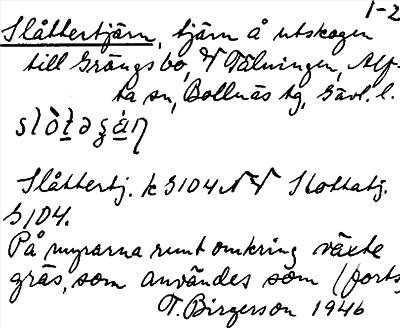 1-2
Slåttertjärn, tjärn å utskogen
till Grängsbo, V Tälningen, Alf-
ta sn, Bollnäs tg, Gävl. l.
Slåttertj. k G104 NV Slottatj.
G104.
På myrarna runt omkring växte
gräs, som användes som (forts.
T. Birgerson 1946